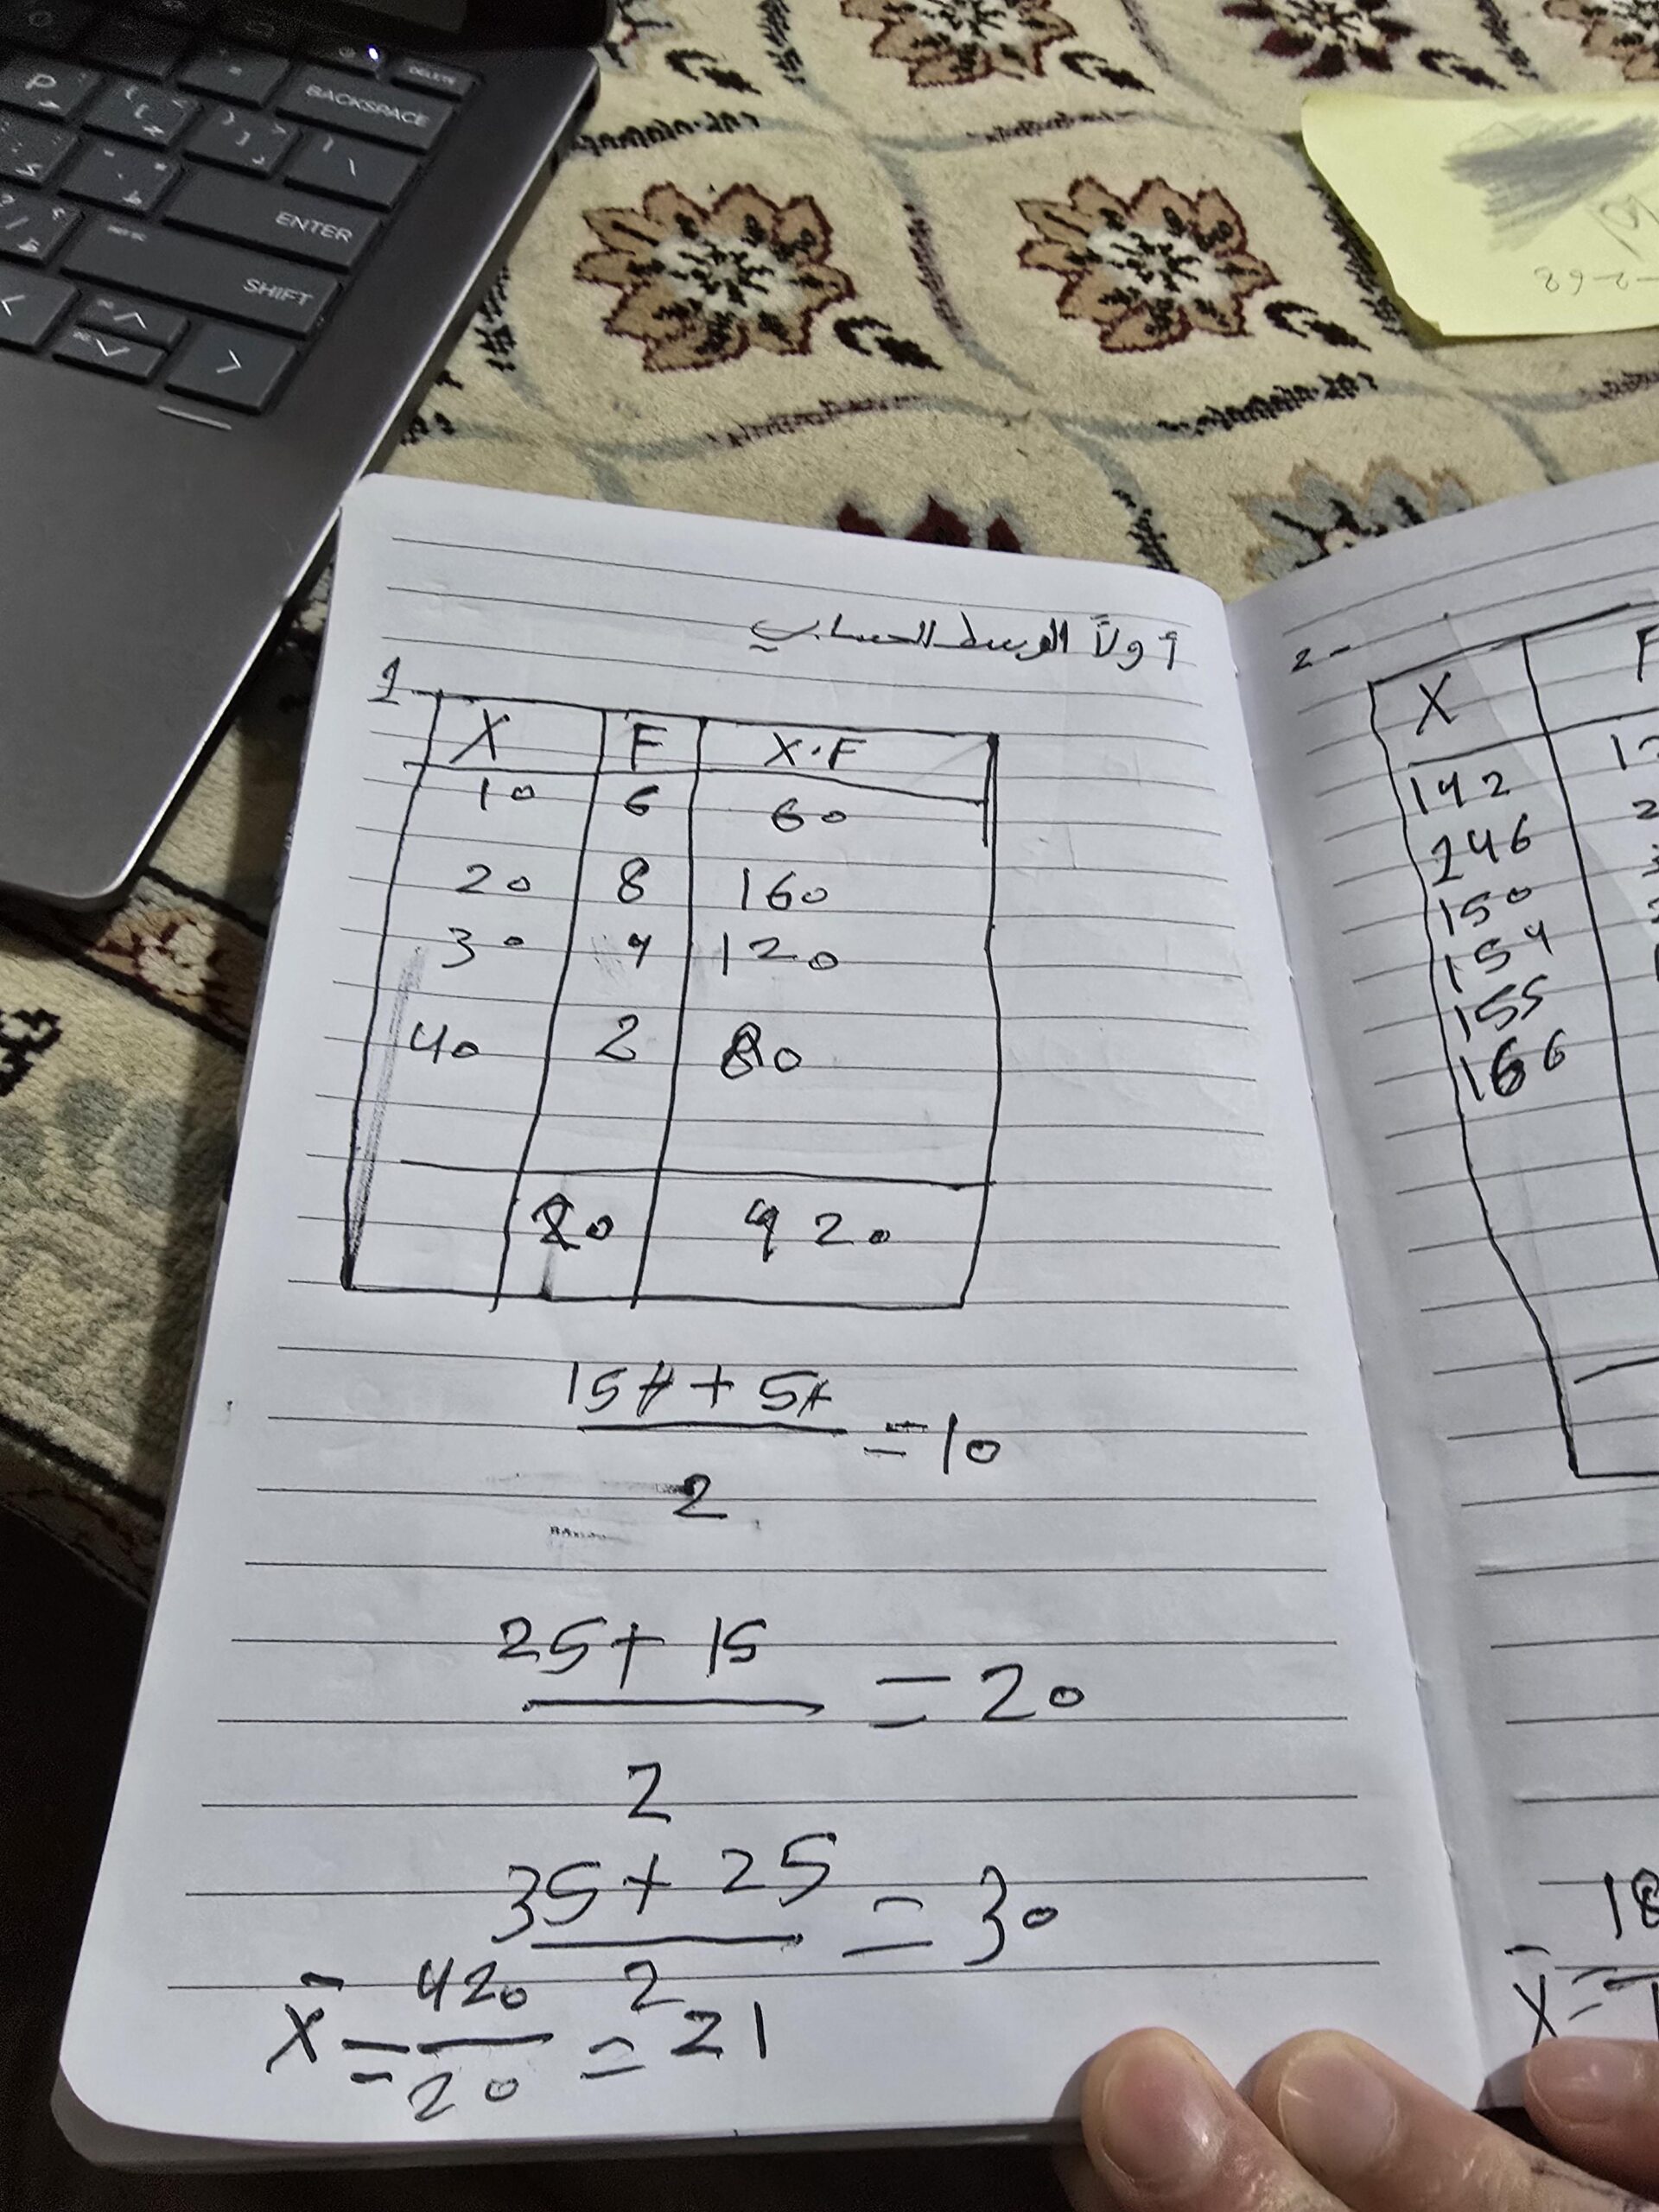 DELETE
BACKSPACE
ENTER
SHIFT
أولاً الوسط الحسابي
1-
X F X.F
10 6 60
20 8 160
30 4 120
40 2 80
20 420
15+ + 5+
= 10
2
25+ 15
= 20
2
35+ 25
= 30
2
X̄ = 420
= 21
20
2-
X F
142
146
150
154
155
166
X̄ =